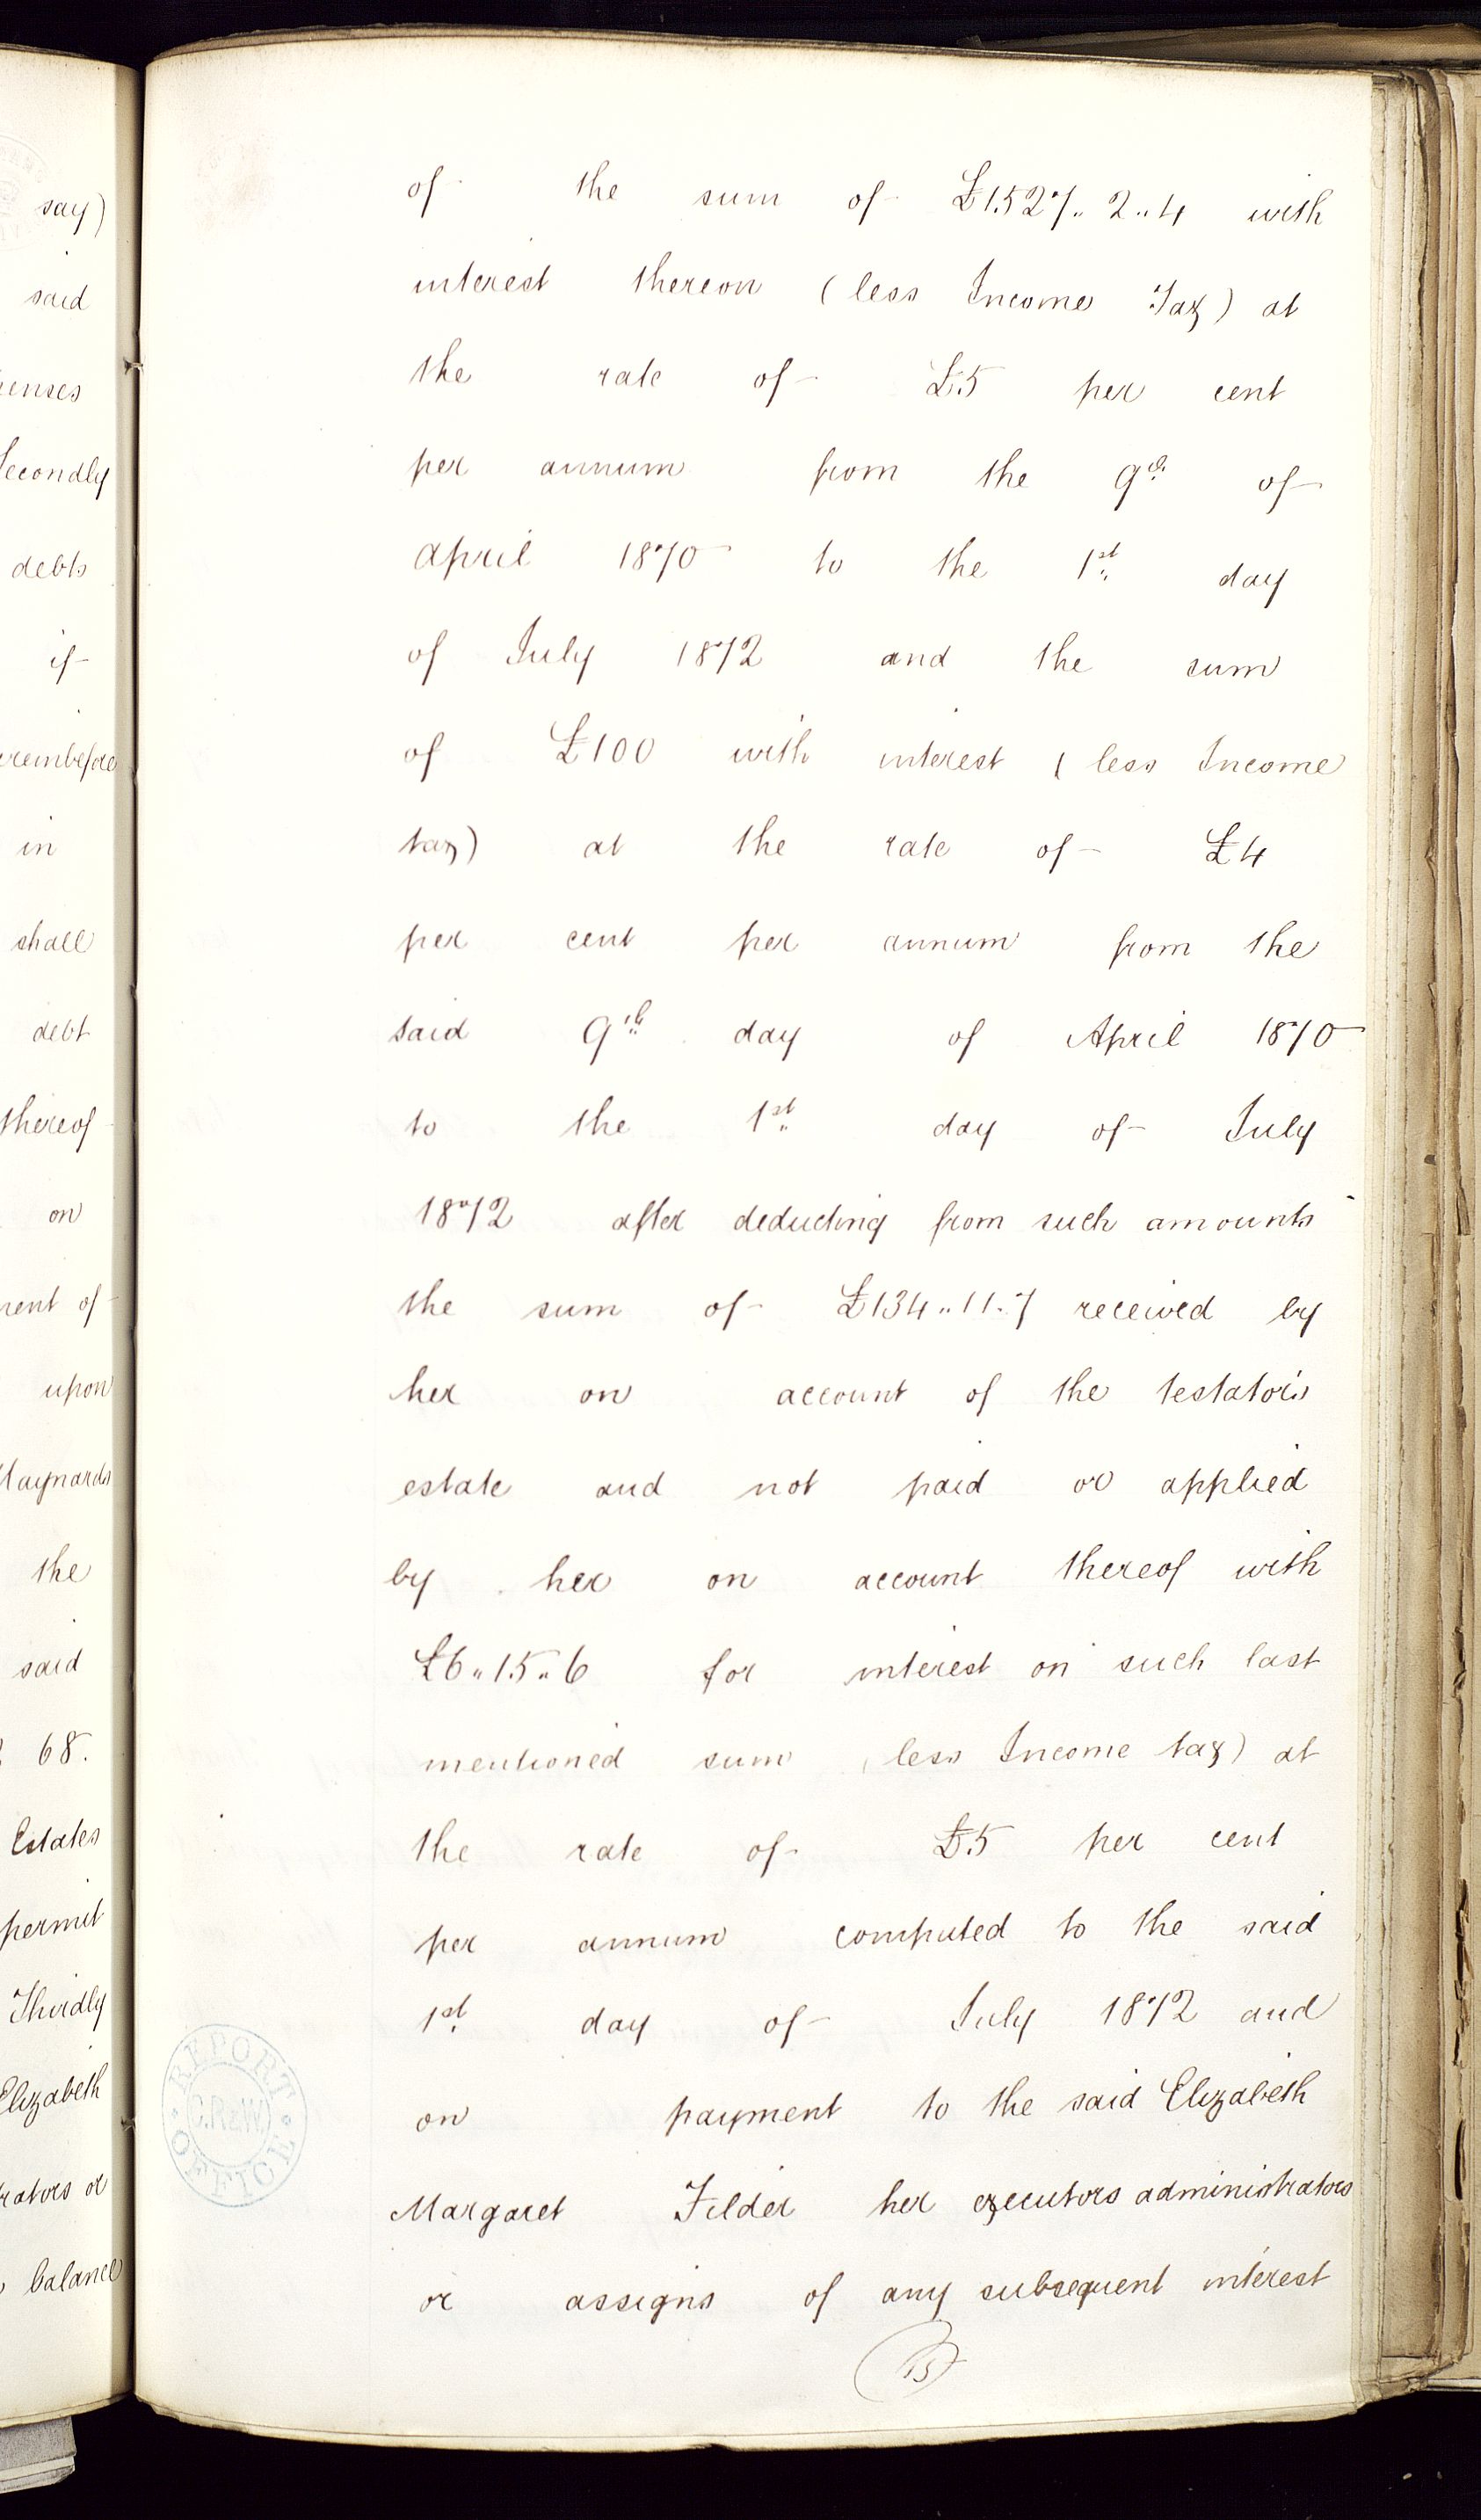 say)
said
enses
Secondly
debts
if
reinbefore
in
shall
debt
thereof
on
ment of
upon
Maynards
the
said
68.
Estates
permit
Thirdly
Elizabeth
rators or
balance
of the sum of £1527.. 2..4 with
interest thereon (less Income Tax) at
the rate of £5 per cent
per annum from the 9th of
April 1870 to the 1st day
of July 1872 and the sum
of £100 with interest (less Income
tax) at the rate of £4
per cent per annum from the
said 9th day of April 1870
to the 1st day of July
1872 after deducting from such amounts
the sum of £134..11.7 received by
her on account of the testator's
estate and not paid or applied
by her on account thereof with
£6..15..6 for interest on such last
mentioned sum (less Income tax) at
the rate of £5 per cent
per annum computed to the said
1st day of July 1872 and
on payment to the said Elizabeth
Margaret Filder her executors administrators
or assigns of any subsequent interest
15
REPORT OFFICE
C.R&W.